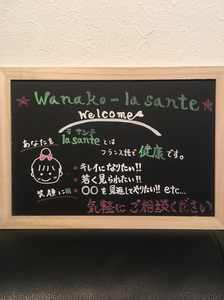 ★Wanako-la sante★
Welcome
あなたを
ラ サンテ
la santeとは
フランス語で健康です。
★キレイになりたい!!
★若く見られたい!!
★〇〇を見返してやりたい!! etc...
笑顔に
気軽にご相談ください